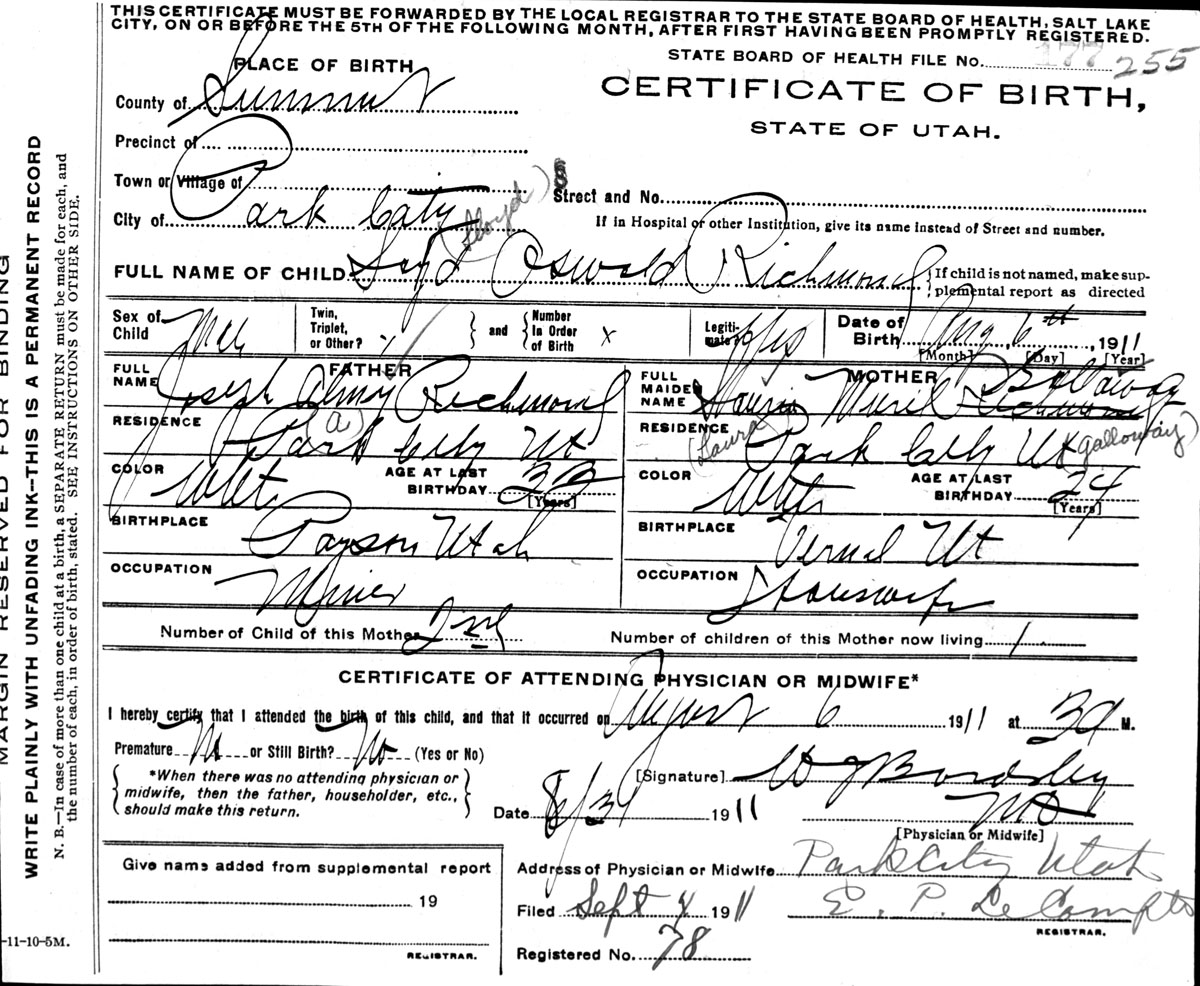 THIS CERTIFICATE MUST BE FORWARDED BY THE LOCAL REGISTRAR TO THE STATE BOARD OF HEALTH, SALT LAKE
CITY, ON OR BEFORE THE 5TH OF THE FOLLOWING MONTH, AFTER FIRST HAVING BEEN PROMPTLY REGISTERED.
STATE BOARD OF HEALTH FILE No. 177 255
PLACE OF BIRTH
CERTIFICATE OF BIRTH,
STATE OF UTAH.
County of Summit
Precinct of
Town or Village of
Street and No.
City of Park City
If in Hospital or other Institution, give its name instead of Street and number.
(Lloyd)
FULL NAME OF CHILD Loyd Oswald Richmond
If child is not named, make sup-
plemental report as directed
Sex of Child Male
Twin, Triplet, or Other?
and
Number In Order of Birth x
Legiti- mate? Yes
Date of Birth Aug 6th, 1911
[Month] [Day] [Year]
FATHER
FULL NAME Joseph Richmond
(a)
RESIDENCE Park City Ut
COLOR White
AGE AT LAST BIRTHDAY 33
[Years]
BIRTHPLACE Payson Utah
OCCUPATION Miner
MOTHER
FULL MAIDEN NAME Muril Richmond
(Laura Galloway)
RESIDENCE Park City Ut
COLOR White
AGE AT LAST BIRTHDAY 24
[Years]
BIRTHPLACE Vernal Ut
OCCUPATION Housewife
Number of Child of this Mother 2nd
Number of children of this Mother now living 1
CERTIFICATE OF ATTENDING PHYSICIAN OR MIDWIFE*
I hereby certify that I attended the birth of this child, and that it occurred on August 6 1911 at M.
Premature No or Still Birth? No (Yes or No)
*When there was no attending physician or
midwife, then the father, householder, etc.,
should make this return.
[Signature] W J Bardsley
Date 8/31 1911
MD
[Physician or Midwife]
Give name added from supplemental report
19
REGISTRAR.
Address of Physician or Midwife Park City Utah
Filed Sept 4 1911 E. P. Le Compte
REGISTRAR.
Registered No. 78
-11-10-5M.
MARGIN RESERVED FOR BINDING
WRITE PLAINLY WITH UNFADING INK—THIS IS A PERMANENT RECORD
N. B.—In case of more than one child at a birth, a SEPARATE RETURN must be made for each, and
the number of each, in order of birth, stated. SEE INSTRUCTIONS ON OTHER SIDE.